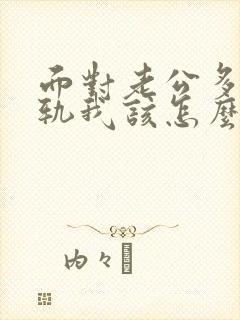 而對老公多
軌我該怎麼
内々